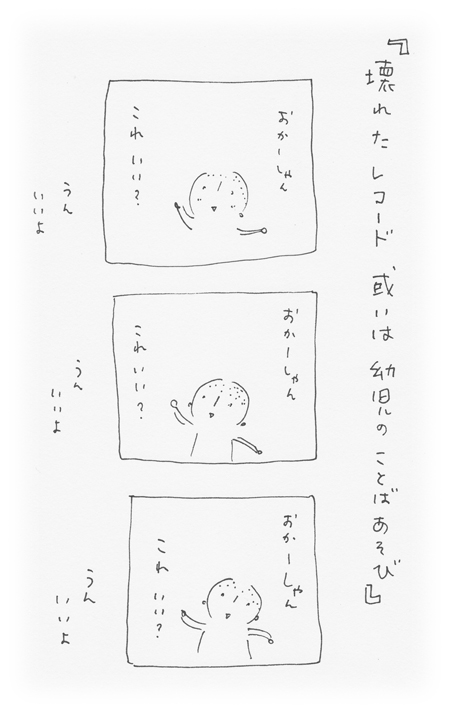 『壊れたレコード 或いは 幼児のことばあそび』
おかーしゃん
これ いい？
うん
いいよ
おかーしゃん
これ いい？
うん
いいよ
おかーしゃん
これ いい？
うん
いいよ